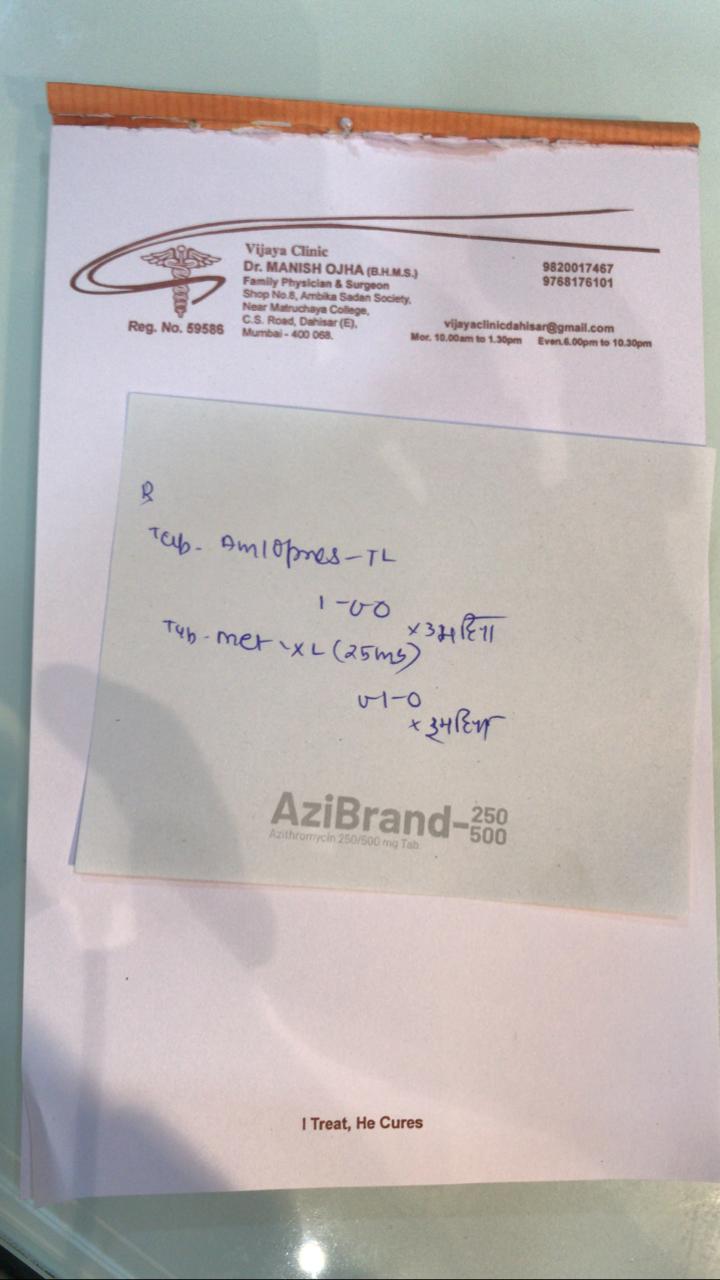 Vijaya Clinic
Dr. MANISH OJHA (B.H.M.S.)
Family Physician & Surgeon
Shop No.8, Ambika Sadan Society,
Near Matruchaya College,
C.S. Road, Dahisar (E),
Mumbai - 400 068.
Reg. No. 59586
9820017467
9768176101
vijayaclinicdahisar@gmail.com
Mor. 10.00am to 1.30pm Even.6.00pm to 10.30pm
℞
Tab. Amlopres-TL
1-0-0
Tab. Met-XL (25mg)
0-1-0
AziBrand-250
500
Azithromycin 250/500 mg Tab
I Treat, He Cures